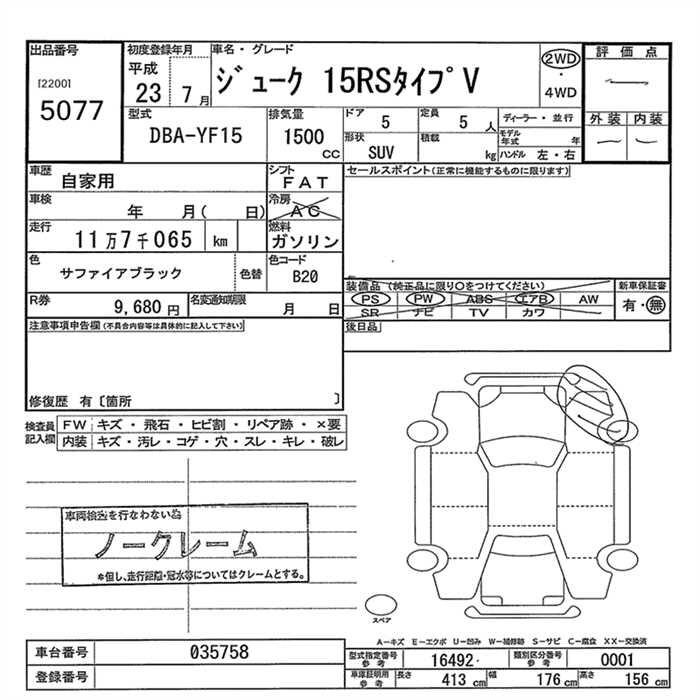 出品番号
[2200]
5077
初度登録年月
平成
23 7月
車名・グレード
ジューク 15RSタイプV
2WD
・
4WD
評価点
外装 内装
型式
DBA-YF15
排気量
1500
CC
ドア 5
定員 5 人
形状 SUV
積載 kg
ディーラー・並行
モデル年式 年
ハンドル 左・右
車歴 自家用
シフト FAT
車検 年 月( 日)
冷房 AC
走行 11万7千065 km
燃料 ガソリン
色 サファイアブラック 色替
色コード B20
R券 9,680円
名変通知期限 月 日
セールスポイント(正常に機能するものに限ります)
装備品(純正品に限り○をつけてください)
PS PW ABS エアB AW
SR ナビ TV カワ
新車保証書
有・無
後日品
注意事項申告欄(不具合内容等は具体的に記入して下さい)
修復歴 有〔箇所 〕
検査員記入欄
FW キズ・飛石・ヒビ割・リペア跡・×要
内装 キズ・汚レ・コゲ・穴・スレ・キレ・破レ
車両検査を行なわない為
ノークレーム
*但し、走行距離・冠水等についてはクレームとする。
スペア
A-キズ E-エクボ U-凹み W-補修跡 S-サビ C-腐食 XX-交換済
車台番号 035758
登録番号
型式指定番号 参考 16492
類別区分番号 参考 0001
車庫証明用 参考 長さ 413 cm 幅 176 cm 高さ 156 cm